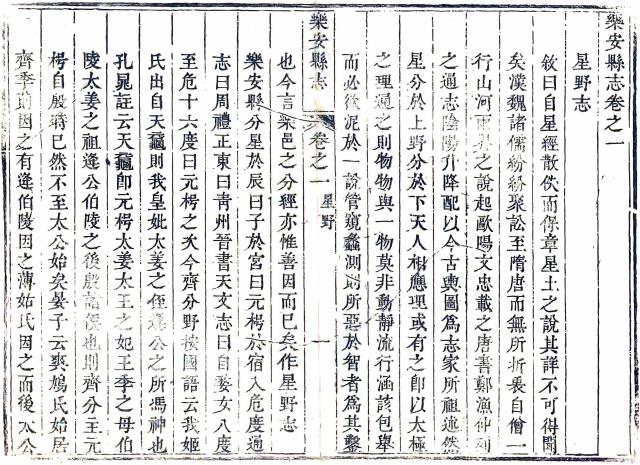 樂安縣志卷之一
星野志
敘曰自星經散佚而保章星土之說其詳不可得聞
矣漢魏諸儒紛紛聚訟至隋唐而無所折衷自僧一
行山河兩戒之說起歐陽文忠載之唐書鄭漁仲刻
之通志陰陽升降配以今古輿圖為志家所祖述然
星分於上野分於下天人相應理或有之卽以太極
之理通之則物物與一物莫非動靜流行涵該包舉
而必欲泥於一說管窺蠡測則所惡於智者為其鑿
樂安縣志
卷之一
星野
一
也今言樂邑之分經亦惟善因而已矣作星野志
樂安縣分星於辰曰子於宮曰元枵於宿入危度通
志曰周禮正東曰青州晉書天文志曰自婺女八度
至危十六度曰元枵之次今齊分野按國語云我姬
氏出自天黿則我皇妣太姜之侄逄公之所馮神也
孔晁註云天黿卽元枵太姜太王之妃王季之母伯
陵太姜之祖逄公伯陵之後殷諸侯也則齊分主元
枵自殷時已然不至太公始矣晏子云爽鳩氏始居
齊季萴因之有逄伯陵因之薄姑氏因之而後太公